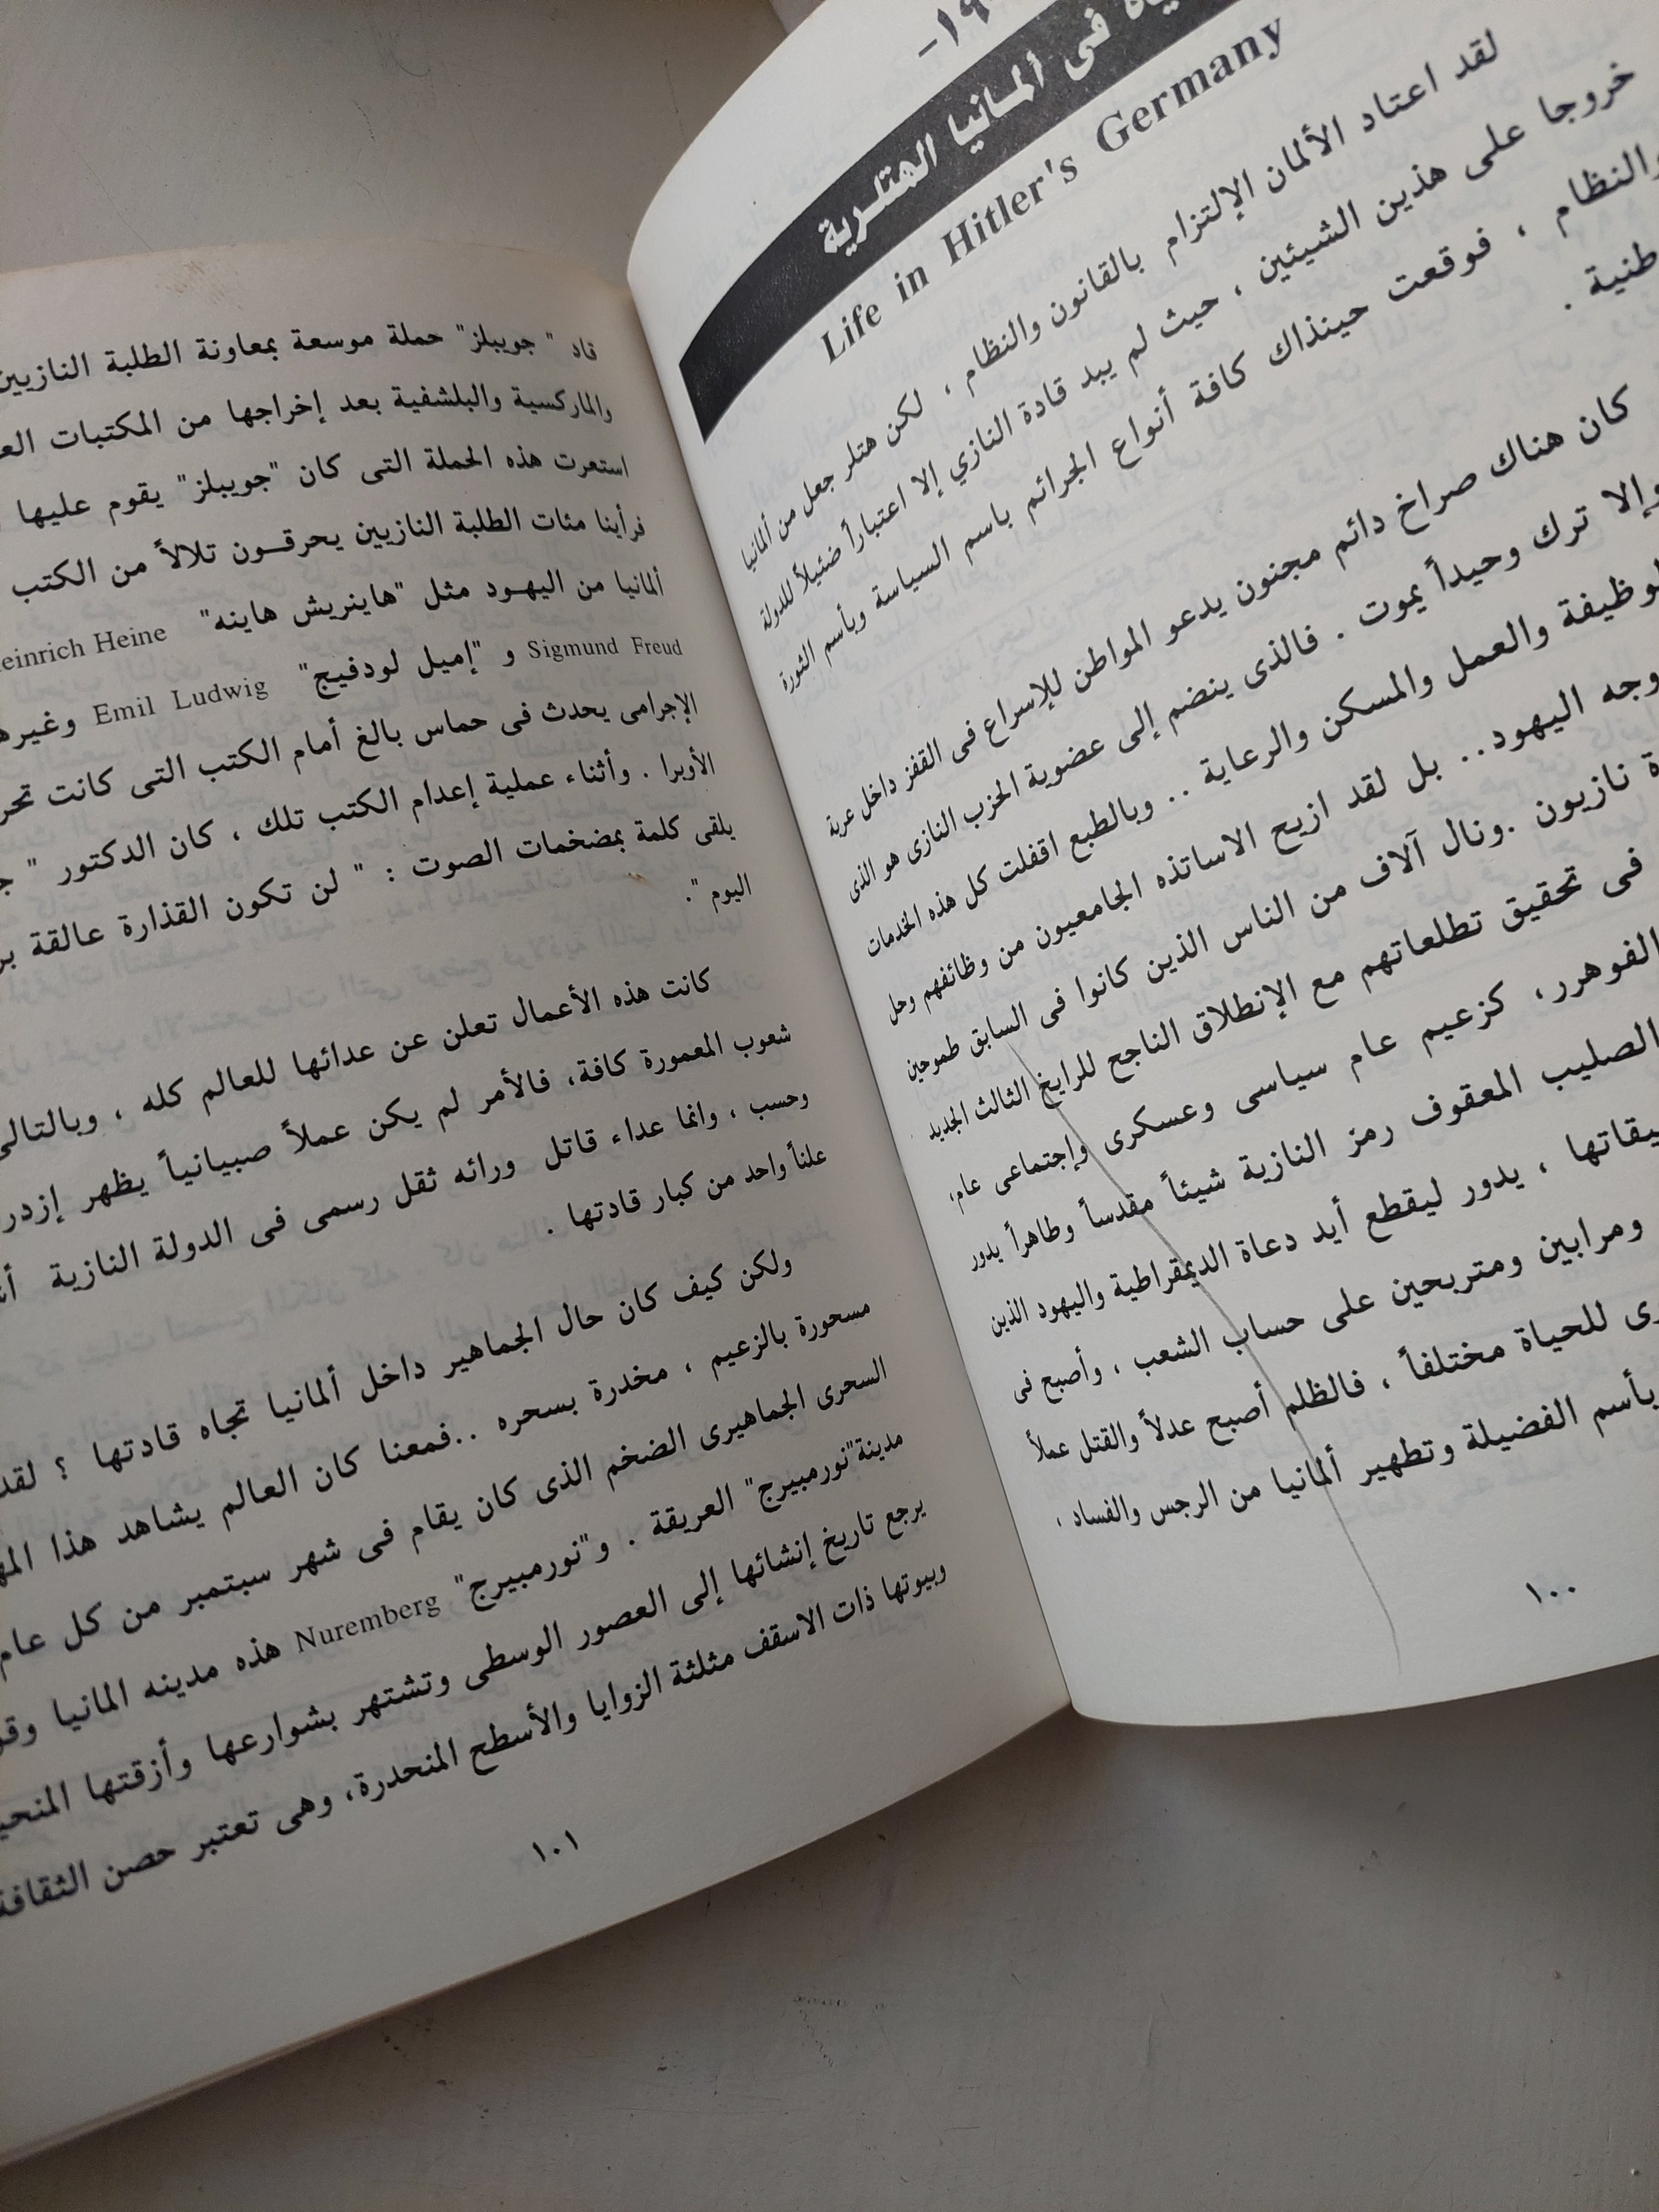 فى ألمـانيا الهتلـرية
Life in Hitler's Germany
لقد اعتاد الألمان الإلتزام بالقانون والنظام ، لكن هتلر جعل من ألمانيا
خروجا على هذين الشيئين ، حيث لم يبد قادة النازي إلا اعتباراً ضئيلاً للدولة
والنظام ، فوقعت حينذاك كافة أنواع الجرائم باسم السياسة وبأسم الثورة
كان هناك صراخ دائم مجنون يدعو المواطن للإسراع فى القفز داخل عربة
وإلا ترك وحيداً يموت . فالذى ينضم إلى عضوية الحزب النازى هو الذى
والعمل والمسكن والرعاية .. وبالطبع اقفلت كل هذه الخدمات
وجه اليهود.. بل لقد ازيح الاساتذه الجامعيون من وظائفهم وحل
نازيون .ونال آلاف من الناس الذين كانوا فى السابق طموحين
فى تحقيق تطلعاتهم مع الإنطلاق الناجح للرايخ الثالث الجديد
الفوهرر، كزعيم عام سياسى وعسكرى وإجتماعى عام،
الصليب المعقوف رمز النازية شيئاً مقدساً وطاهراً يدور
، يدور ليقطع أيد دعاة الديمقراطية واليهود الذين
ومرابين ومتربحين على حساب الشعب ، وأصبح فى
للحياة مختلفاً ، فالظلم أصبح عدلاً والقتل عملاً
بأسم الفضيلة وتطهير ألمانيا من الرجس والفساد ،
١٠٠
قاد " جوبيلز" حملة موسعة بمعاونة الطلبة النازيين
والماركسية والبلشفية بعد إخراجها من المكتبات
استعرت هذه الحملة التى كان "جوبيلز" يقوم عليها
فرأينا مئات الطلبة النازيين يحرقــون تلالاً من الكتب
ألمانيا من اليهـود مثل "هاينريش هاينه" Heine
Sigmund Freud و "إميل لودفيج" Emil Ludwig
الإجرامى يحدث فى حماس بالغ أمام الكتب التى كانت
الأوبرا . وأثناء عملية إعدام الكتب تلك ، كان الدكتور "
يلقى كلمة بمضخمات الصوت : " لن تكون القذارة عالقة
اليوم ".
كانت هذه الأعمال تعلن عن عدائها للعالم كله ، وبالتالى
شعوب المعمورة كافة، فالأمر لم يكن عملاً صبيانياً يظهر
وحسب ، وانما عداء قاتل ورائه ثقل رسمى فى الدولة النازية
علناً واحد من كبار قادتها .
ولكن كيف كان حال الجماهير داخل ألمانيا تجاه قادتها ؟
مسحورة بالزعيم ، مخدرة بسحره ..فمعنا كان العالم يشاهد هذا
السحرى الجماهيرى الضخم الذى كان يقام فى شهر سبتمبر من كل عام
مدينة"نورمبيرج" العريقة . و"نورمبيرج" Nuremberg هذه مدينه المانيا
يرجع تاريخ إنشائها إلى العصور الوسطى وتشتهر بشوارعها وأزقتها
وبيوتها ذات الاسقف مثلثة الزوايا والأسطح المنحدرة، وهى تعتبر حصن الثقافة
١٠١